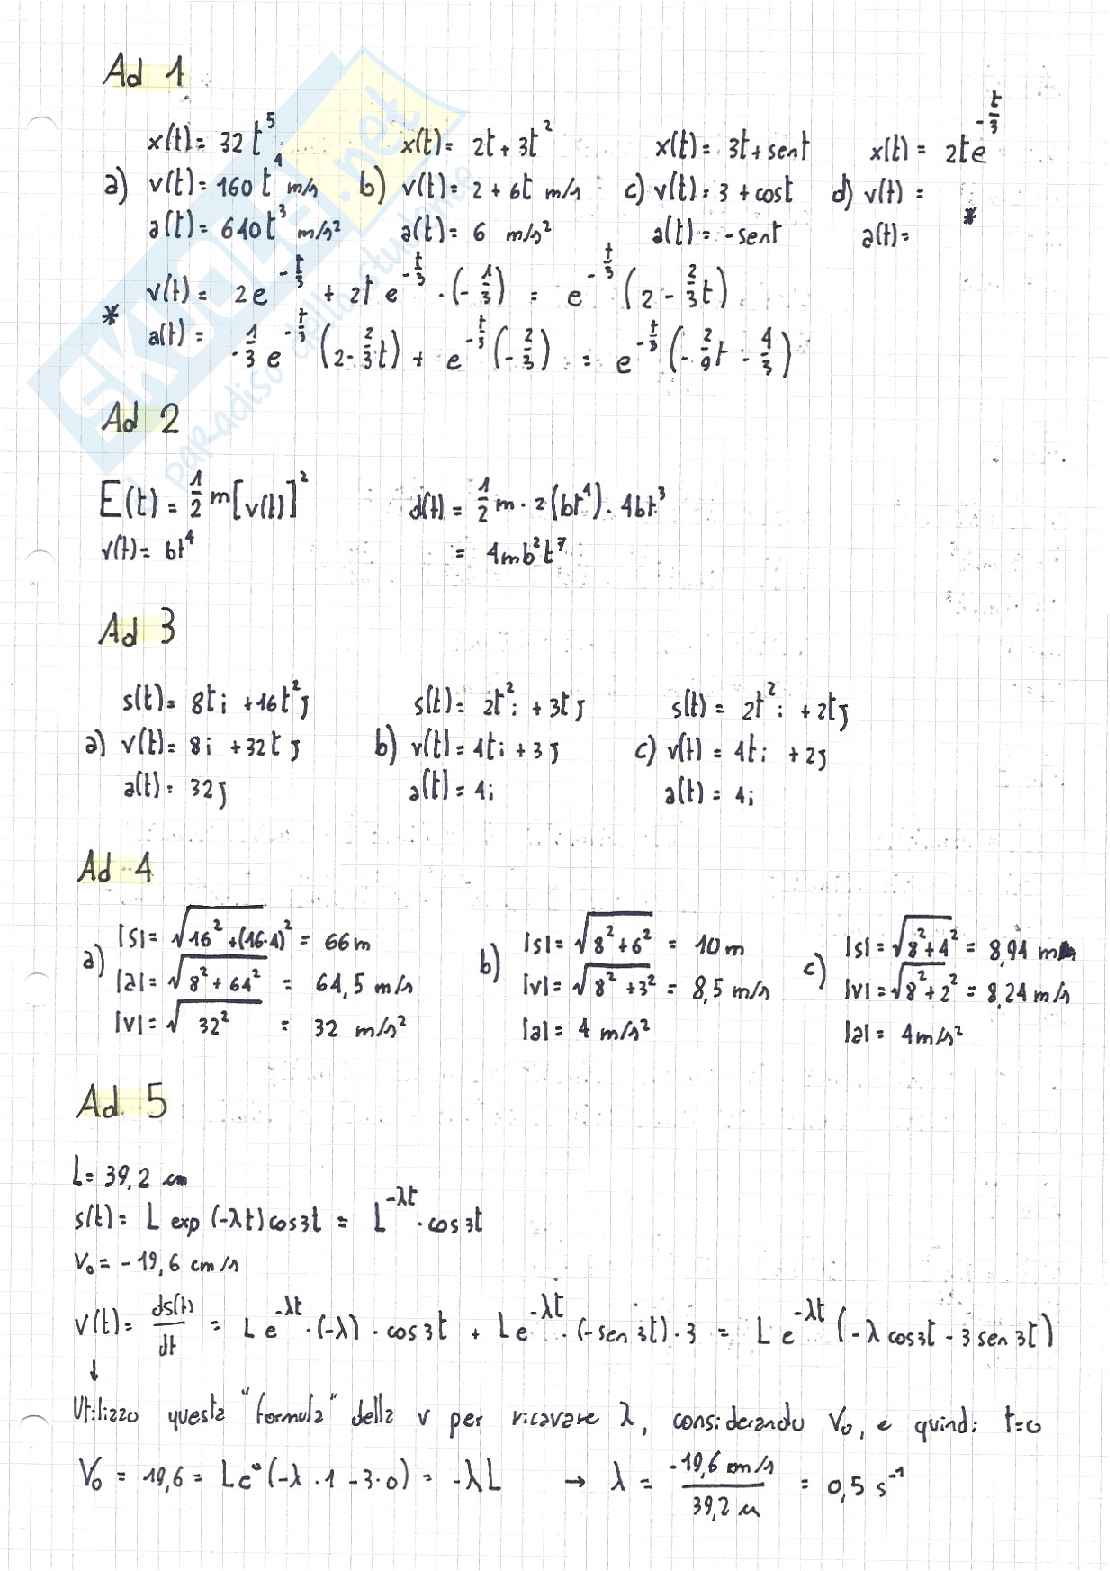 Ad 1
x(t) = 32 t⁵
a) v(t) = 160 t⁴ m/s
a(t) = 640t³ m/s²
x(t) = 2t + 3t²
b) v(t) = 2 + 6t m/s
a(t) = 6 m/s²
x(t) = 3t + sent
c) v(t) = 3 + cost
a(t) = -sent
x(t) = 2te^(-t/3)
d) v(t) = *
a(t) =
* v(t) = 2e^(-t/3) + 2t e^(-t/3) · (-1/3) = e^(-t/3) (2 - 2/3 t)
a(t) = -1/3 e^(-t/3) (2 - 2/3 t) + e^(-t/3) (-2/3) = e^(-t/3) (-2/9 t - 4/3)
Ad 2
E(t) = 1/2 m [v(t)]²
v(t) = bt⁴
d(t) = 1/2 m · 2 (bt⁴) · 4bt³
= 4mb²t⁷
Ad 3
s(t) = 8ti + 16t²j
a) v(t) = 8i + 32tj
a(t) = 32j
s(t) = 2t²i + 3tj
b) v(t) = 4ti + 3j
a(t) = 4i
s(t) = 2t²i + 2tj
c) v(t) = 4ti + 2j
a(t) = 4i
Ad 4
a) |s| = √16² + (16·4)² = 66 m
|a| = √8² + 64² = 64,5 m/s
|v| = √32² = 32 m/s²
b) |s| = √8² + 6² = 10 m
|v| = √8² + 3² = 8,5 m/s
|a| = 4 m/s²
c) |s| = √8² + 4² = 8,94 m
|v| = √8² + 2² = 8,24 m/s
|a| = 4 m/s²
Ad 5
L = 39,2 cm
s(t) = L exp (-λt) cos3t = L^(-λt) · cos3t
V₀ = -19,6 cm/s
v(t) = ds(t)/dt = L e^(-λt) · (-λ) · cos3t + L e^(-λt) · (-sen 3t) · 3 = L e^(-λt) (-λ cos3t - 3 sen 3t)
↓
Utilizzo questa "formula" della v per ricavare λ, considerando V₀, e quindi t=0
V₀ = -19,6 = L e⁰ (-λ · 1 - 3 · 0) = -λL → λ = -19,6 cm/s / 39,2 cm = 0,5 s⁻¹
SKUOLA.net
il paradiso dello studente